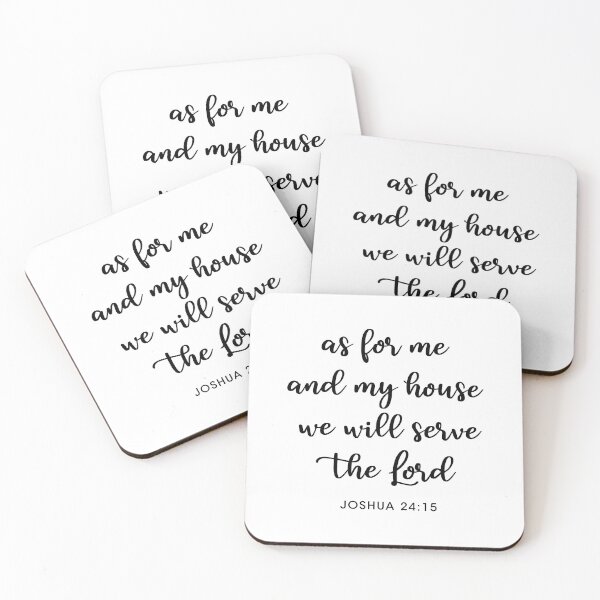 as for me
and my house
serve
as for me
and my house
we will serve
the Lord
as for me
and my house
we will serve
the Lor
JOSHUA 2
as for me
and my house
we will serve
the Lord
JOSHUA 24:15